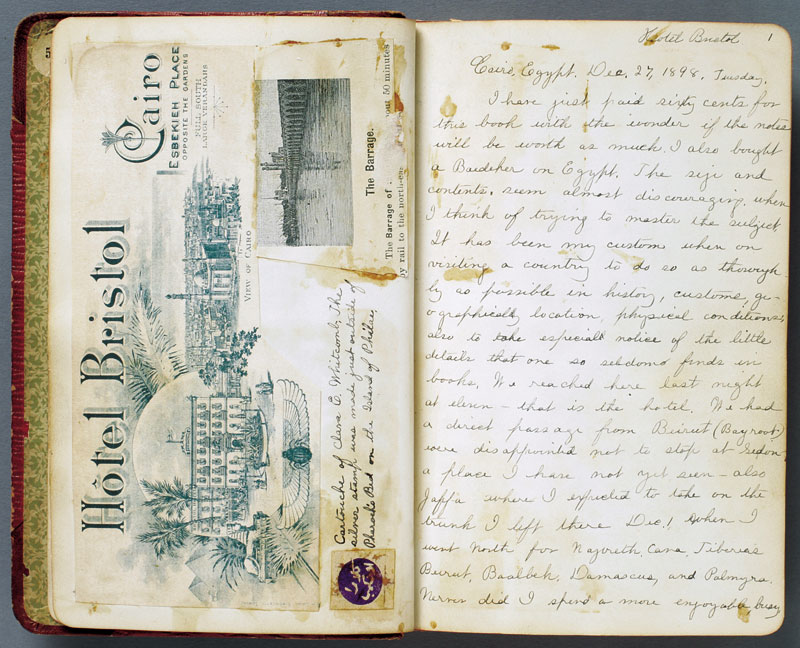 Hôtel Bristol
Cairo
ESBEKIEH PLACE
OPPOSITE THE GARDENS
FULL SOUTH
LARGE VERANDAHS
VIEW OF CAIRO
The Barrage.
The Barrage of
50 minutes
by rail to the north-ea
Cartouche of Clara E. Whitcomb, The
silver stamp was made just outside of
Bed on the Island of Philae,
Hotel Bristol 1
Cairo, Egypt. Dec. 27, 1898. Tuesday.
I have just paid sixty cents for
this book with the wonder if the notes
will be worth as much. I also bought
a Baedeker on Egypt. The size and
contents, seem almost discouraging, when
I think of trying to master the subject
It has been my custom when on
visiting a country to do so as thorough-
ly as possible in history, customs, ge-
ographically location, physical conditions;
also to take especial notice of the little
details that one so seldoms finds in
books. We reached here last night
at eleven – that is the hotel. We had
a direct passage from Beirut (Bayroot)
were disappointed not to stop at Sidon
a place I have not yet seen – also
Jaffa where I expected to take on the
trunk I left there Dec. 1, when I
went North for Nazareth, Cana, Tiberias
Beirut, Baalbek, Damascus, and Palmyra.
Never did I spend a more enjoyable, busy